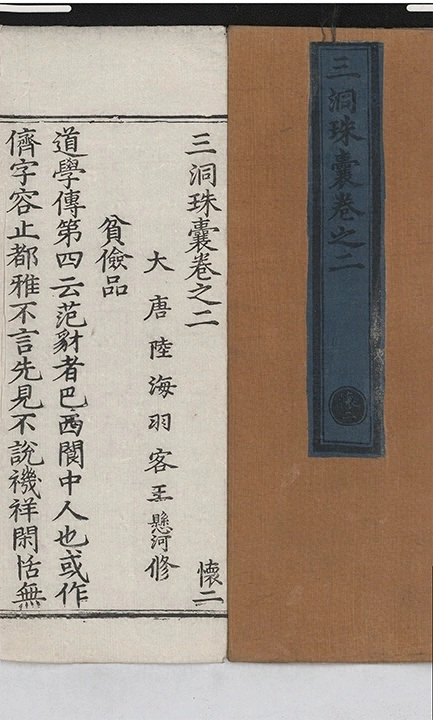 三洞珠囊卷之二
懷二
三洞珠囊卷之二
懷二
大唐陸海羽客王懸河修
貧儉品
道學傳第四云范豺者巴西閬中人也或作
儕字容止都雅不言先見不說禨祥閑恬無